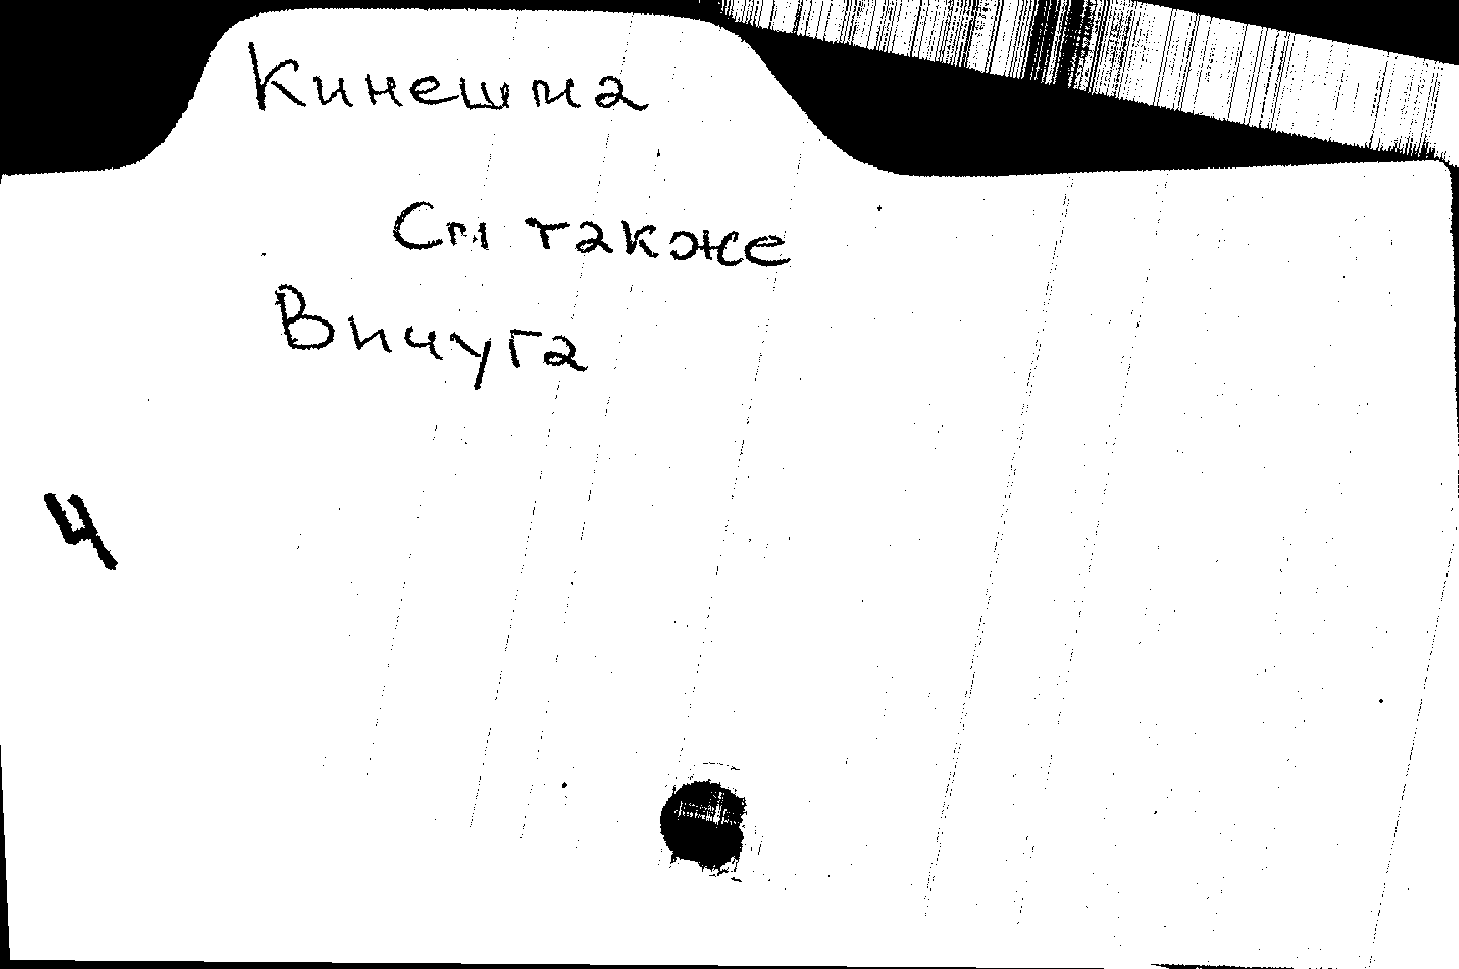 Кинешма
См также
Вичуга
4